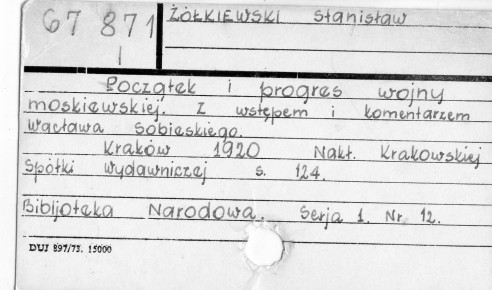 67 871
I
ŻÓŁKIEWSKI Stanisław
Początek i progres wojny
moskiewskiej. Z wstępem i komentarzem
Wacława Sobieskiego.
Kraków 1920 Nakł. Krakowskiej
Spółki Wydawniczej s. 124.
Bibljoteka Narodowa. Serja 1. Nr 12.
DUJ 897/73. 15000